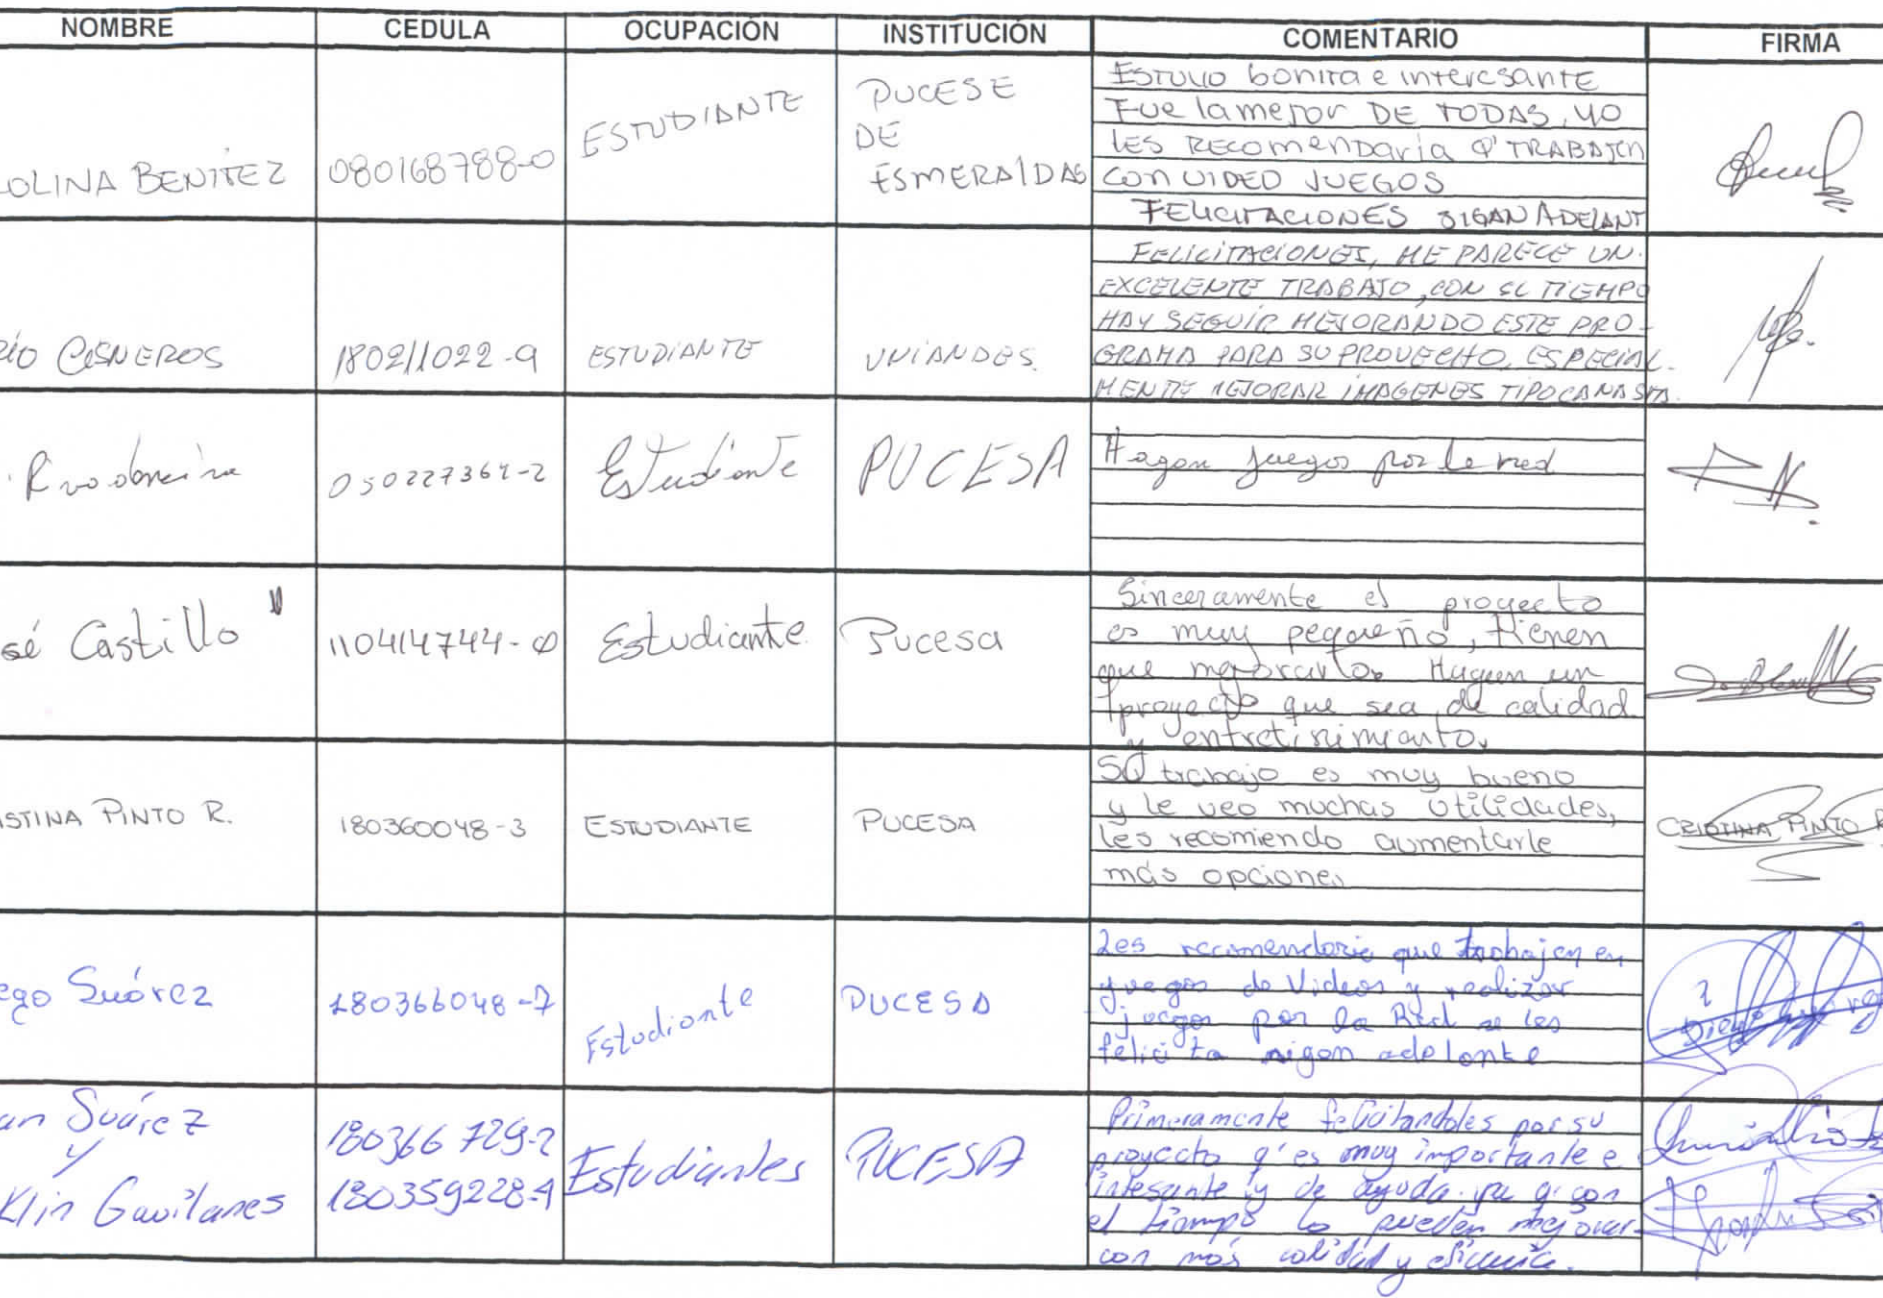 NOMBRE CEDULA OCUPACIÓN INSTITUCIÓN COMENTARIO FIRMA
OLINA BENITEZ 080168788-0 ESTUDIANTE PUCESE
DE
ESMERALDAS
ESTUVO bonita e interesante
Fue la mejor DE TODAS, YO
LES RECOMENDARIA Q' TRABAJEN
CON VIDEO JUEGOS
FELICITACIONES SIGAN ADELANT
CISNEROS 180211022-9 ESTUDIANTE UNIANDES.
FELICITACIONES, ME PARECE UN
EXCELENTE TRABAJO, CON EL TIEMPO
HAY SEGUIR MEJORANDO ESTE PRO-
GRAMA PARA SU PROVECHO, ESPECIAL-
MENTE MEJORAR IMAGENES TIPO CANASTA.
050227361-2 Estudiante PUCESA
Hagan juegos por la red
sé Castillo 110414744-0 Estudiante Pucesa
Sinceramente el proyecto
es muy pequeño, tienen
que mejorarlo. Hagan un
proyecto que sea de calidad
y entretinimiento.
STINA PINTO R. 180360048-3 ESTUDIANTE PUCESA
SU trabajo es muy bueno
y le veo muchas utilidades,
les recomiendo aumentarle
más opciones
CRISTINA PINTO R
ego Suárez 180366048-7 Estudiante PUCESA
Les recomendaria que trabajen en
juegos de Videos y realizar
juegos por la Red se les
felicita sigan adelante
an Suárez
y
klin Gavilanes
180366729-2
180359228-4
Estudiantes PUCESA
Primeramente felicitandoles por su
proyecto q' es muy importante e
intesante y de ayuda. ya q' con
el tiempo lo pueden mejorar
con más calidad y eficiencia.